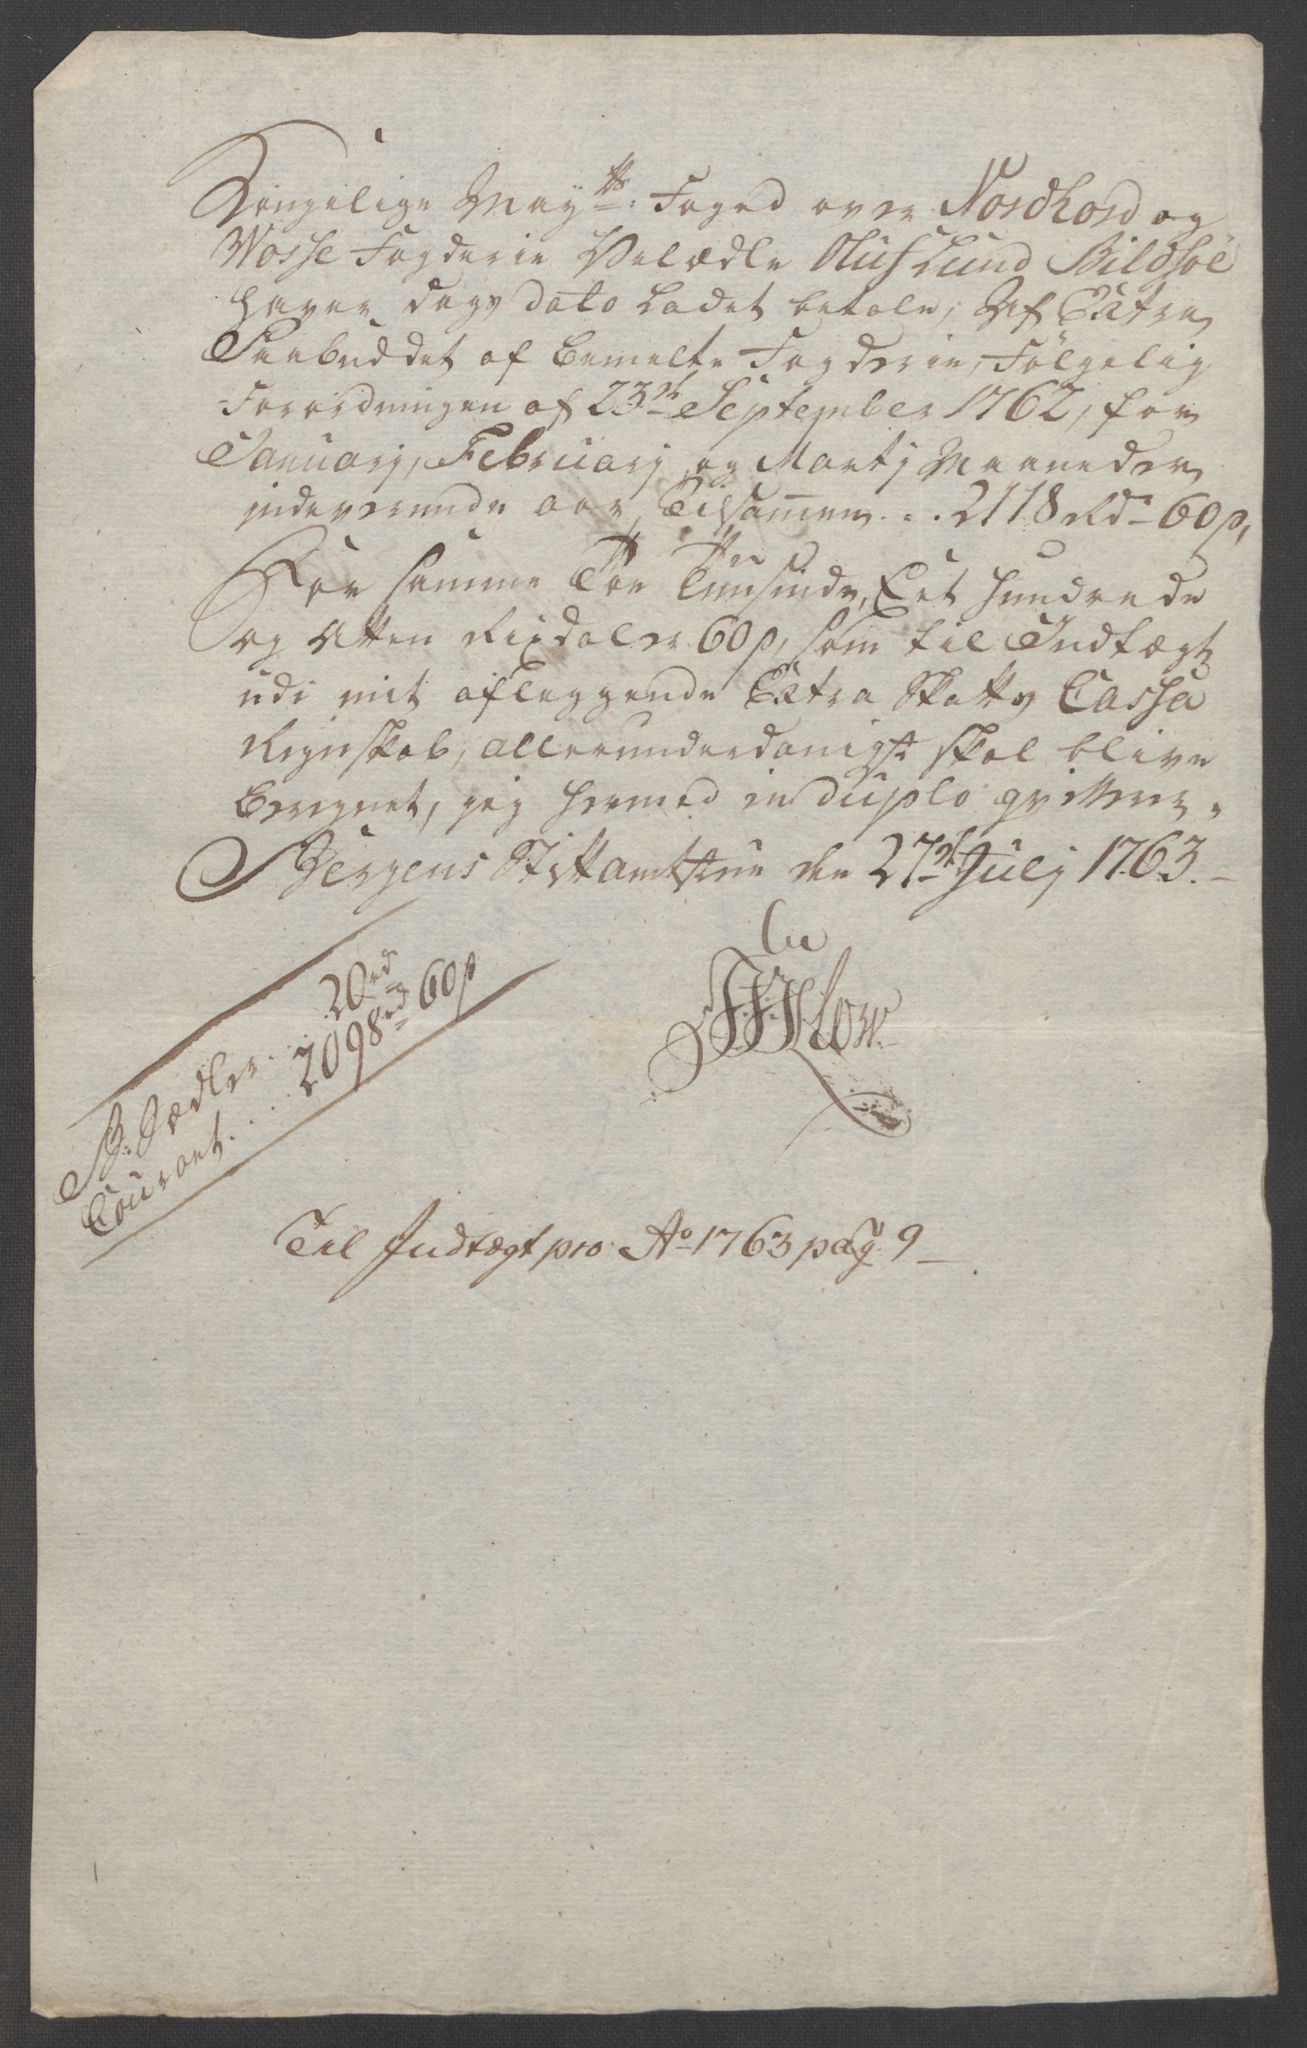 Kongelige May<sup>tts</sup>: Foged over Nordhord og
Wosse Fogderie Velædle Oluf Lund Bildsöe
haver dags dato ladet betale, Af Extra
Paabuddet af bemelte Fogderie, Fölgelig
Forordningen af 23de September 1762, for
Januarj, Februarj og Martj Maaneder
indeværende aar, Tilsammen . . . 2118 Rdr 60 s,
For samme Toe Tuusinde, Eet hundrede
og Atten Rixdaler 60 s, som til Indtægt
udi mit aflæggende Extra Skatts Cassa
Regnskab, allerunderdanigst skal blive
beregnet, jeg hermed in duplo qvitterer.
Bergens Stiftamtstue den 27de Julj 1763.
B: Sedler . . . 20 rd
Courant . . . 2098 rd 60 s
Til Indtægt pro Ao 1763 pag 9